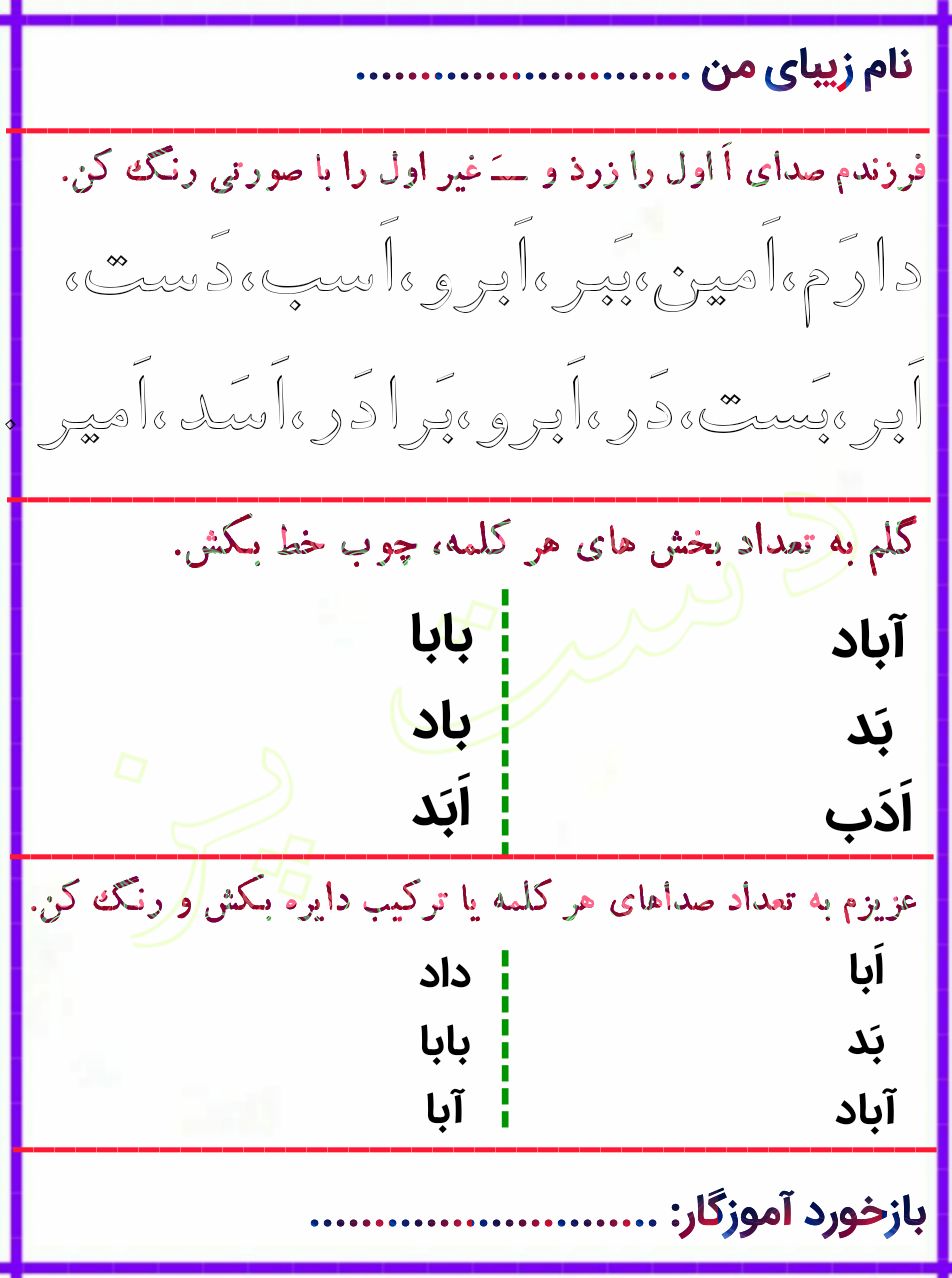 نام زیبای من ..........................
فرزندم صدای اَ اول را زرذ و ــَـ غیر اول را با صورتی رنگ کن.
دارَم،اَمین،بَبر،اَبرو،اَسب،دَست،
اَبر،بَست،دَر،اَبرو،بَرادَر،اَسَد،اَمیر .
گلم به تعداد بخش های هر کلمه، چوب خط بکش.
آباد بابا
بَد باد
اَدَب اَبَد
عزیزم به تعداد صداهای هر کلمه یا ترکیب دایره بکش و رنگ کن.
اَبا داد
بَد بابا
آباد آبا
بازخورد آموزگار: ...........................